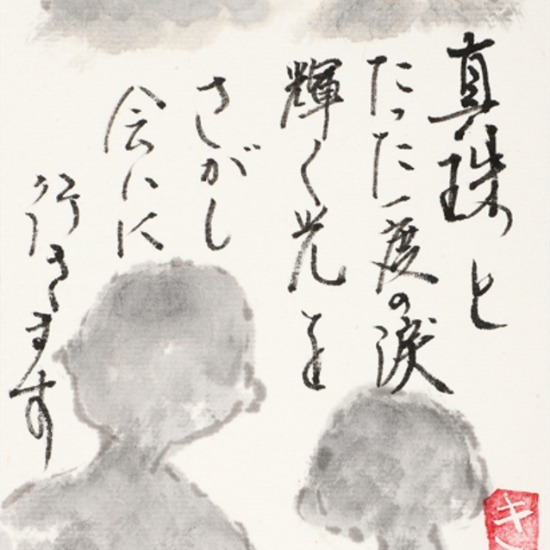 真珠と
たった一度の涙
輝く光を
さがし
会いに
行きます
キ